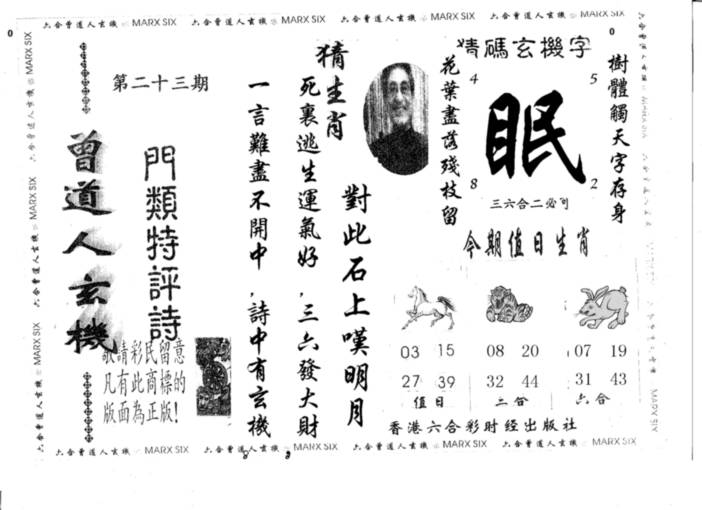 六合曾道人玄機 MARX SIX 六合曾道人玄機 MARX SIX 六合曾道人玄機 MARX SIX 六合曾道人玄機 MARX SIX
猜碼玄機字
樹體觸天字存身
花葉盡落殘枝留
4
5
眠
8
2
三六合二必
今期值日生肖
03 15
27 39
值日
08 20
32 44
三合
07 19
31 43
六合
香港六合彩时经出版社
猜生肖
對此石上嘆明月
死裏逃生運氣好,三六發大財
一言難盡不開中,詩中有玄機
第二十三期
門類特評詩
曾道人玄機
敬請彩民留意
凡有此商標的
版面為正版!
六合曾道人玄機 MARX SIX 六合曾道人玄機 MARX SIX 六合曾道人玄機 MARX SIX 六合曾道人玄機